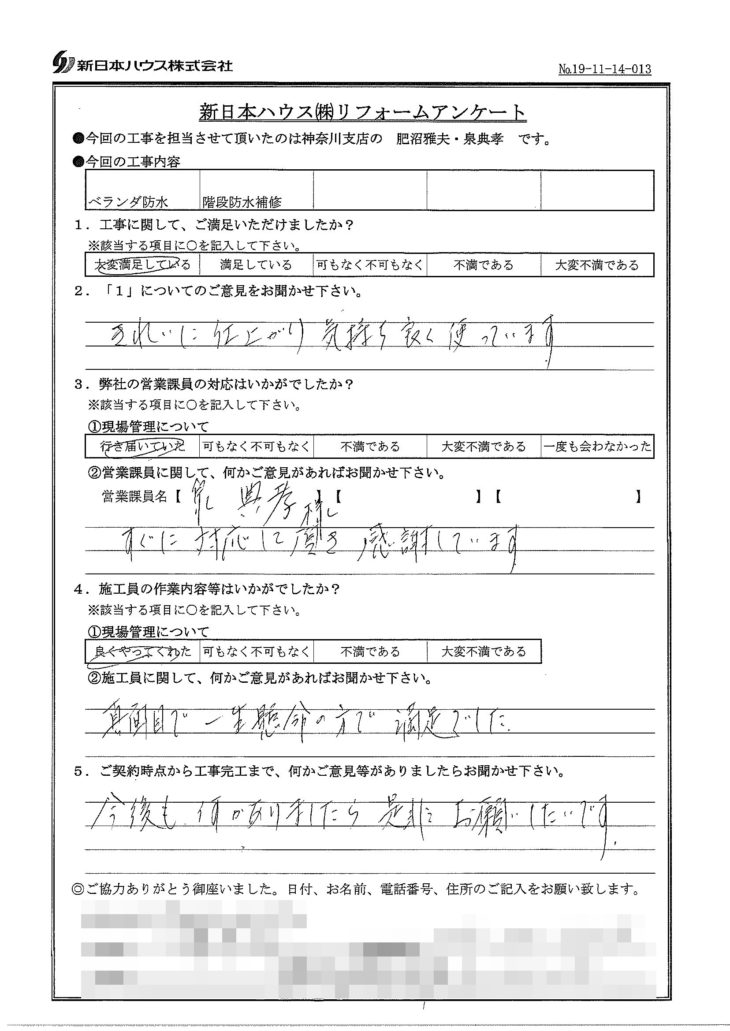 新日本ハウス株式会社
№19-11-14-013
新日本ハウス㈱リフォームアンケート
●今回の工事を担当させて頂いたのは神奈川支店の 肥沼雅夫・泉典孝 です。
●今回の工事内容
ベランダ防水 階段防水補修
1.工事に関して、ご満足いただけましたか?
※該当する項目に〇を記入して下さい。
大変満足している 満足している 可もなく不可もなく 不満である 大変不満である
2.「1」についてのご意見をお聞かせ下さい。
きれいに仕上がり気持ち良く使っています
3.弊社の営業課員の対応はいかがでしたか?
※該当する項目に〇を記入して下さい。
①現場管理について
行き届いていた 可もなく不可もなく 不満である 大変不満である 一度も会わなかった
②営業課員に関して、何かご意見があればお聞かせ下さい。
営業課員名【 泉 典孝様 】【 】【 】
すぐに対応して頂き感謝しています
4.施工員の作業内容等はいかがでしたか?
※該当する項目に〇を記入して下さい。
①現場管理について
良くやってくれた 可もなく不可もなく 不満である 大変不満である
②施工員に関して、何かご意見があればお聞かせ下さい。
真面目で一生懸命の方で満足でした
5.ご契約時点から工事完工まで、何かご意見等がありましたらお聞かせ下さい。
今後も何かありましたら是非お願いしたいです。
◎ご協力ありがとう御座いました。日付、お名前、電話番号、住所のご記入をお願い致します。